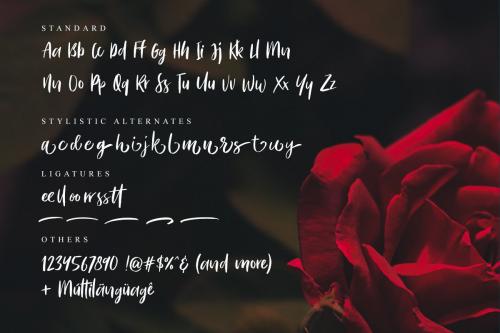 STANDARD
Aa Bb Cc Dd Ff Gg Hh Ii Jj Kk Ll Mm
Nn Oo Pp Qq Rr Ss Tt Uu Vv Ww Xx Yy Zz
STYLISTIC ALTERNATES
a c d e g h i j k l m n r s t u y
LIGATURES
ee ll oo rr ss tt
OTHERS
1234567890 !@#$%^& (and more)
+ Múltilãngüagê